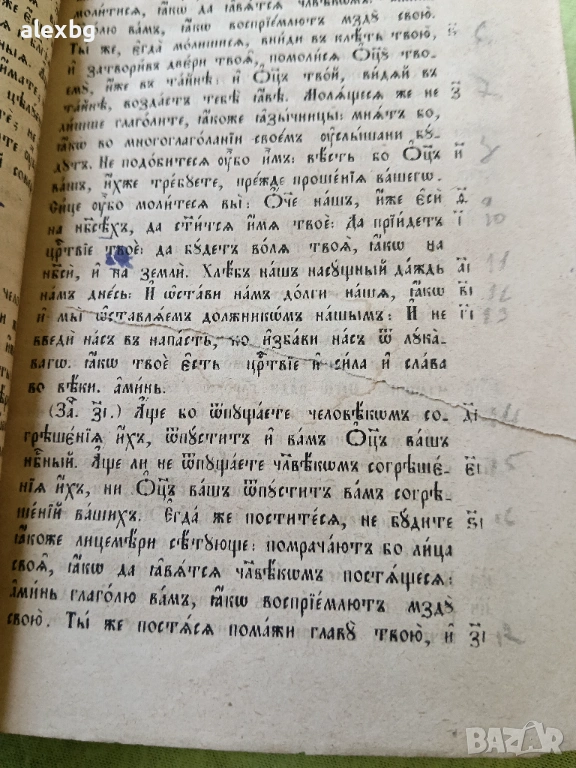 alexbg
молитися, ꙗ҆́кѡ да ꙗ҆вѧ́тсѧ человѣ́кѡмъ. а҆ми́нь
глаго́лю ва́мъ, ꙗ҆́кѡ воспрїе́млютъ мздꙋ̀ свою̀.
Ты́ же, є҆гда̀ мо́лишисѧ, вни́ди въ клѣ́ть твою̀, ѕ҃
и҆ затвори́въ две́ри твоѧ̑, помоли́сѧ Ѻ҆ц҃ꙋ̀ тво-
емꙋ̀, и҆́же въ та́йнѣ: и҆ Ѻ҆ц҃ъ тво́й, ви́дѧй въ
та́йнѣ, возда́стъ тебѣ̀ ꙗ҆́вѣ. Молѧ́щесѧ же не з҃
ли́шше глаго́лите, ꙗ҆́коже ꙗ҆зы́чницы: мнѧ́тъ бо,
ꙗ҆́кѡ во многоглаго́ланїи свое́мъ ᲂу҆слы́шани бꙋ́-
дꙋтъ. Не подо́битесѧ ᲂу҆̀бо и҆̀мъ: вѣ́сть бо Ѻ҆ц҃ъ и҃
ва́шъ, и҆́хже тре́бꙋете, пре́жде проше́нїѧ ва́шегѡ.
Си́це ᲂу҆̀бо моли́тесѧ вы̀: Ѻ҆́ч҃е на́шъ, и҆́же є҆сѝ ѳ҃
на нб҃сѣ́хъ, да ст҃и́тсѧ и҆́мѧ твоѐ: Да прїи́детъ і҃
црⷭ҇твїе твоѐ: да бꙋ́детъ во́лѧ твоѧ̀, ꙗ҆́кѡ на
нб҃сѝ, и҆ на землѝ. Хлѣ́бъ на́шъ насꙋ́щный да́ждь а҃і
на́мъ дне́сь: И҆ ѡ҆ста́ви на́мъ до́лги на́шѧ, ꙗ҆́кѡ в҃і
и҆ мы̀ ѡ҆ставлѧ́емъ должникѡ́мъ на́шымъ: И҆ не г҃і
введѝ на́съ въ напа́сть, но и҆зба́ви на́съ ѿ лꙋка́-
вагѡ. ꙗ҆́кѡ твоѐ є҆́сть црⷭ҇твїе и҆ си́ла и҆ сла́ва
во вѣ́ки. а҆ми́нь.
(За҄. з҃і.) А҆́ще бо ѿпꙋща́ете человѣ́кѡмъ со- д҃і
грѣшє́нїѧ и҆́хъ, ѿпꙋ́ститъ и҆ ва́мъ Ѻ҆ц҃ъ ва́шъ
нбⷭ҇ный. А҆́ще ли не ѿпꙋща́ете чл҃вѣ́кѡмъ согрѣше́- є҃і
нїѧ и҆́хъ, ни Ѻ҆ц҃ъ ва́шъ ѿпꙋ́ститъ ва́мъ согрѣ-
ше́нїй ва́шихъ. Є҆гда́ же постите́сѧ, не бꙋ́дите ѕ҃і
ꙗ҆́коже лицемѣ́ри сѣ́тꙋюще: помрача́ютъ бо ли́ца
своѧ̑, ꙗ҆́кѡ да ꙗ҆вѧ́тсѧ чл҃вѣ́кѡмъ постѧ́щесѧ:
а҆ми́нь глаго́лю ва́мъ, ꙗ҆́кѡ воспрїе́млютъ мздꙋ̀
свою̀. Ты́ же постѧ́сѧ пома́жи главꙋ̀ твою̀, и҆ з҃і
BAZAR